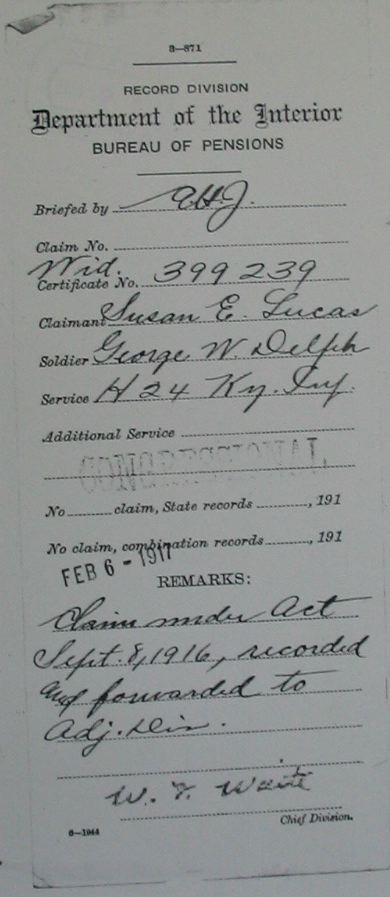 3—871
RECORD DIVISION
Department of the Interior
BUREAU OF PENSIONS
Briefed by
Claim No.
Wid.
Certificate No. 399239
Claimant Susan E. Lucas
Soldier George W. Delph
Service H 24 Ky. Inf.
Additional Service
CONGRESSIONAL
No claim, State records , 191
No claim, combination records , 191
FEB 6 - 1917
REMARKS:
Claim under Act
Sept. 8, 1916, recorded
and forwarded to
Adj. Div.
W. F. Waite
Chief Division.
6—1944